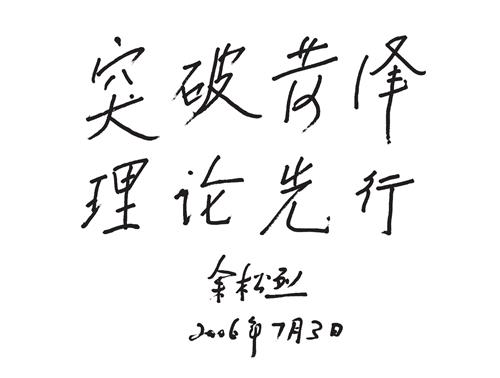 突破菏泽
理论先行
余松烈
2006年7月3日